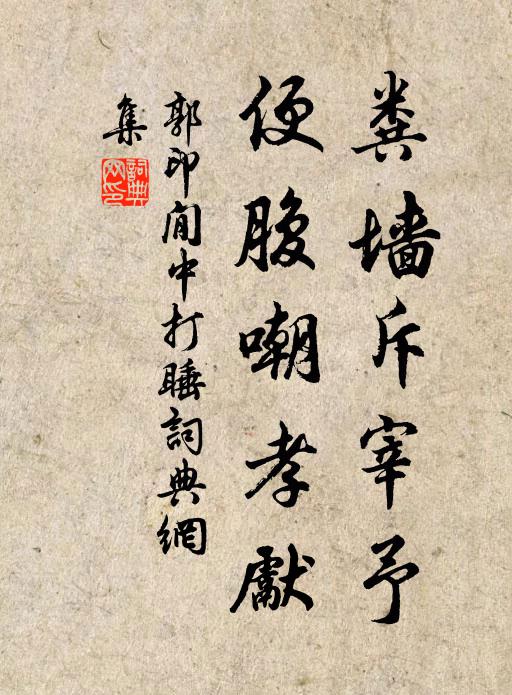 粪墙斥宰予
便腹嘲孝獻
郭印閒中打睡詞典網
集
詞典網印